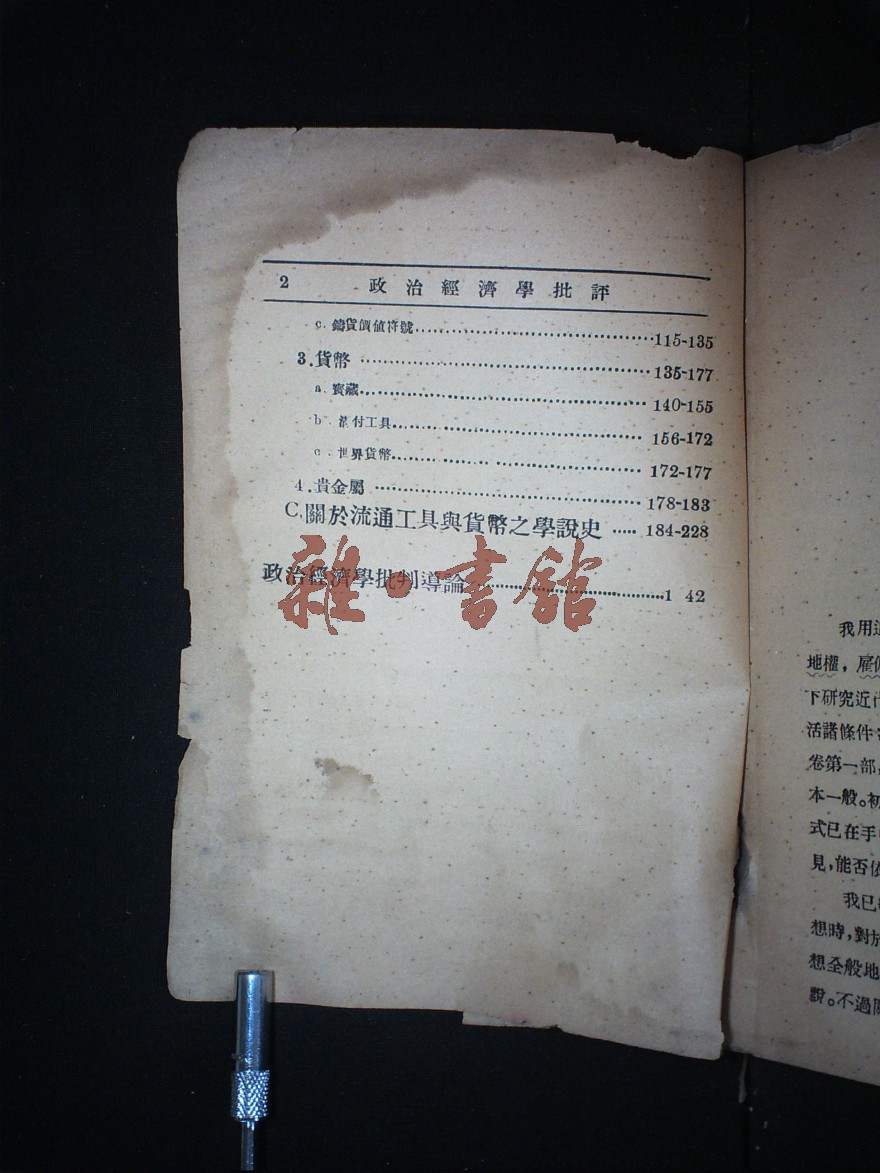 2 政治經濟學批評
c. 鑄貨價值符號 115-135
3. 貨幣 135-177
a. 寶藏 140-155
b. 清付工具 156-172
c. 世界貨幣 172-177
4. 貴金屬 178-183
C. 關於流通工具與貨幣之學說史 184-228
政治經濟學批判導論 1 42
雜·書館
我用
地權，雇
下研究近代
活諸條件
卷第一部
本一般。初
式已在手
見，能否依
我已
想時，對於
想全般地
說。不過